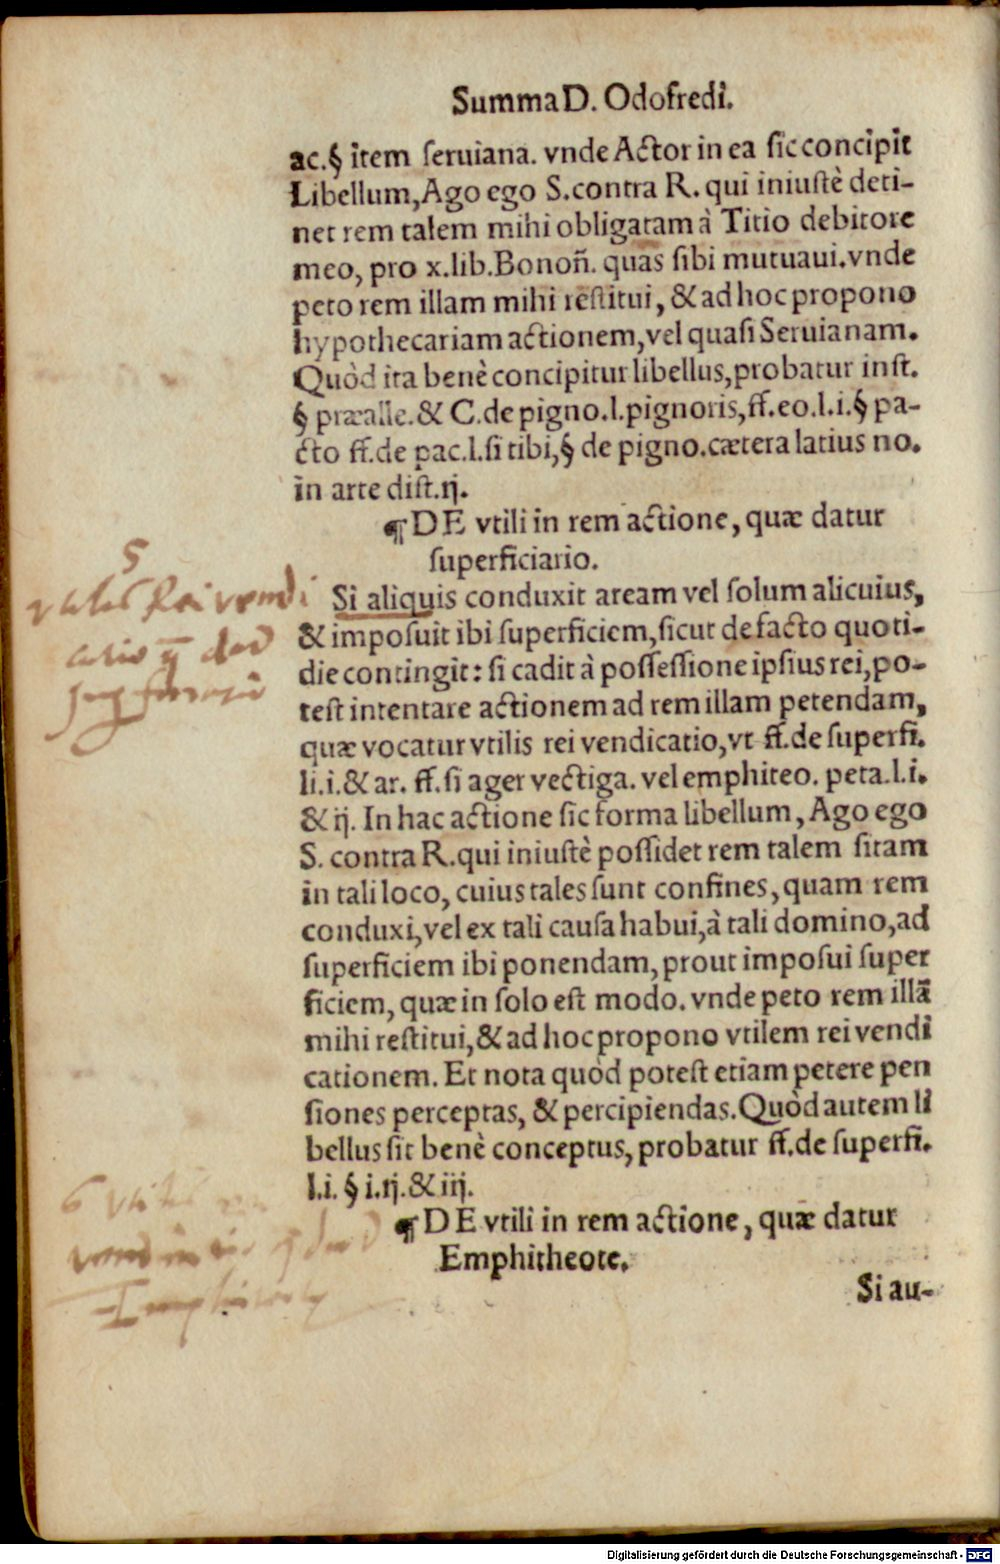 Summa D. Odofredi.
ac. § item seruiana. vnde Actor in ea sic concipit
Libellum, Ago ego S. contra R. qui iniustè deti-
net rem talem mihi obligatam à Titio debitore
meo, pro x. lib. Bonoñ. quas sibi mutuaui. vnde
peto rem illam mihi restitui, & ad hoc propono
hypothecariam actionem, vel quasi Seruianam.
Quòd ita benè concipitur libellus, probatur inst.
§ præalle. & C. de pigno. l. pignoris, ff. eo. l. i. § pa-
cto ff. de pac. l. si tibi, § de pigno. cætera latius no.
in arte dist. ij.
¶ DE vtili in rem actione, quæ datur
superficiario.
5
vtilis Rei vendi
catio q̄ dat᷑
Si aliquis conduxit aream vel solum alicuius,
& imposuit ibi superficiem, sicut de facto quoti-
die contingit: si cadit à possessione ipsius rei, po-
test intentare actionem ad rem illam petendam,
quæ vocatur vtilis rei vendicatio, vt ff. de superfi.
li. i. & ar. ff. si ager vectiga. vel emphiteo. peta. l. i.
& ij. In hac actione sic forma libellum, Ago ego
S. contra R. qui iniustè possidet rem talem sitam
in tali loco, cuius tales sunt confines, quam rem
conduxi, vel ex tali causa habui, à tali domino, ad
superficiem ibi ponendam, prout imposui super
ficiem, quæ in solo est modo. vnde peto rem illã
mihi restitui, & ad hoc propono vtilem rei vendi
cationem. Et nota quòd potest etiam petere pen
siones perceptas, & percipiendas. Quòd autem li
bellus sit benè conceptus, probatur ff. de superfi.
l. i. § i. ij. & iij.
6 vtilis
¶ DE vtili in rem actione, quæ datur
Emphitheote.
Si au-
Digitalisierung gefördert durch die Deutsche Forschungsgemeinschaft - DFG